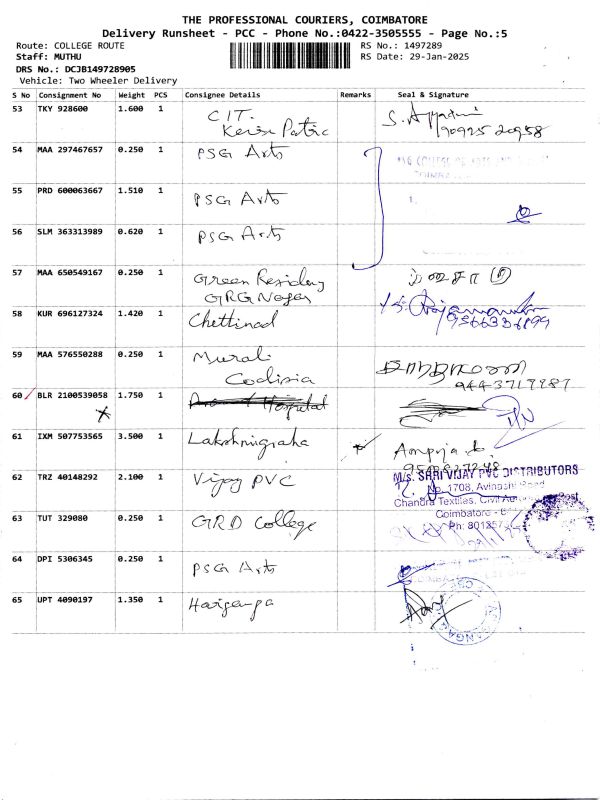 THE PROFESSIONAL COURIERS, COIMBATORE
Delivery Runsheet - PCC - Phone No.:0422-3505555 - Page No.:5
Route: COLLEGE ROUTE
RS No.: 1497289
Staff: MUTHU
RS Date: 29-Jan-2025
DRS No.: DCJB149728905
Vehicle: Two Wheeler Delivery
S No Consignment No Weight PCS Consignee Details Remarks Seal & Signature
53 TKY 928600 1.600 1 CIT.
54 MAA 297467657 0.250 1 PSG Arts
55 PRD 600063667 1.510 1 PSG Arts
56 SLM 363313989 0.620 1 PSG Arts
57 MAA 650549167 0.250 1 Green Residency
GRG Nagar
58 KUR 696127324 1.420 1 Chettinad
59 MAA 576550288 0.250 1 Murali
Codisia
60 BLR 2100539058 1.750 1
61 IXM 507753565 3.500 1 Lakshmigraha
62 TRZ 40148292 2.100 1 Vijay PVC
M/S. SHRI VIJAY PVC DISTRIBUTORS
No. 1708, Avinashi Road
Chandra Textiles, Civil
Coimbatore
Ph: 801257
63 TUT 329080 0.250 1 GRD College
64 DPI 5306345 0.250 1 PSG Arts
65 UPT 4090197 1.350 1